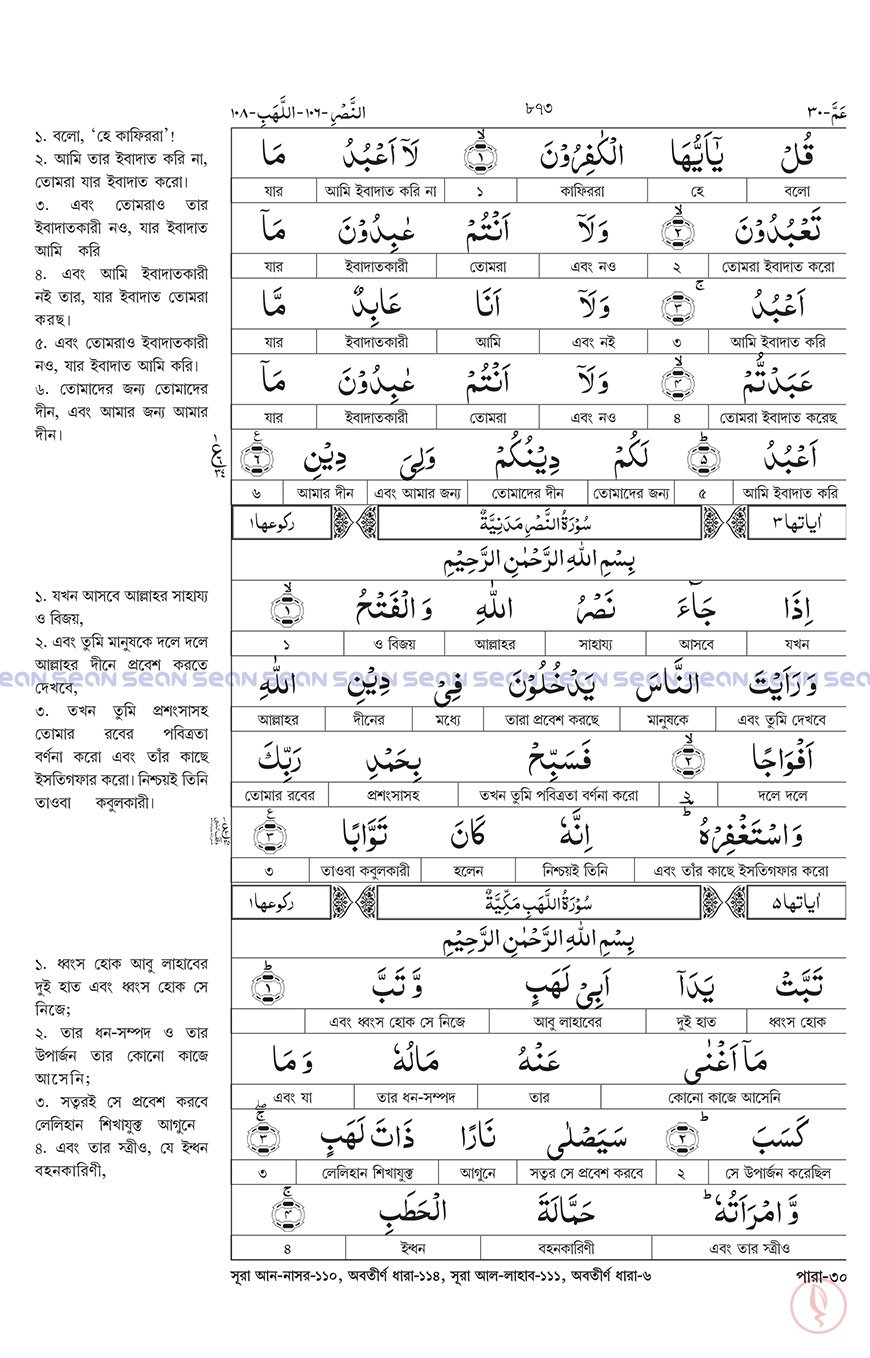 عَمَّ-۳۰
৮৭৩
النَّصْرِ-۱۰۶-اللَّهَبِ-۱۰۸
১. বলো, ‘হে কাফিররা’!
২. আমি তার ইবাদাত করি না,
তোমরা যার ইবাদাত করো।
৩. এবং তোমরাও তার
ইবাদাতকারী নও, যার ইবাদাত
আমি করি
৪. এবং আমি ইবাদাতকারী
নই তার, যার ইবাদাত তোমরা
করছ।
৫. এবং তোমরাও ইবাদাতকারী
নও, যার ইবাদাত আমি করি।
৬. তোমাদের জন্য তোমাদের
দীন, এবং আমার জন্য আমার
দীন।
قُلْ يٰٓاَيُّهَا الْكٰفِرُوْنَ ۙ۱ لَآ اَعْبُدُ مَا
বলো হে কাফিররা ১ আমি ইবাদাত করি না যার
تَعْبُدُوْنَ ۙ۲ وَلَآ اَنْتُمْ عٰبِدُوْنَ مَآ
তোমরা ইবাদাত করো ২ এবং নও তোমরা ইবাদাতকারী যার
اَعْبُدُ ۚ۳ وَلَآ اَنَا عَابِدٌ مَّا
আমি ইবাদাত করি ৩ এবং নই আমি ইবাদাতকারী যার
عَبَدْتُّمْ ۙ۴ وَلَآ اَنْتُمْ عٰبِدُوْنَ مَآ
তোমরা ইবাদাত করেছ ৪ এবং নও তোমরা ইবাদাতকারী যার
اَعْبُدُ ؕ۵ لَكُمْ دِيْنُكُمْ وَلِيَ دِيْنِ ۶
আমি ইবাদাত করি ৫ তোমাদের জন্য তোমাদের দীন এবং আমার জন্য আমার দীন ৬
اٰیاتها ۳ سُوْرَةُ النَّصْرِ مَدَنِيَّةٌ رکوعها ۱
بِسْمِ اللهِ الرَّحْمٰنِ الرَّحِيْمِ
১. যখন আসবে আল্লাহর সাহায্য
ও বিজয়,
২. এবং তুমি মানুষকে দলে দলে
আল্লাহর দীনে প্রবেশ করতে
দেখবে,
৩. তখন তুমি প্রশংসাসহ
তোমার রবের পবিত্রতা
বর্ণনা করো এবং তাঁর কাছে
ইসতিগফার করো। নিশ্চয়ই তিনি
তাওবা কবুলকারী।
اِذَا جَآءَ نَصْرُ اللهِ وَالْفَتْحُ ۙ۱
যখন আসবে সাহায্য আল্লাহর ও বিজয় ১
وَرَاَيْتَ النَّاسَ يَدْخُلُوْنَ فِيْ دِيْنِ اللهِ
এবং তুমি দেখবে মানুষকে তারা প্রবেশ করছে মধ্যে দীনের আল্লাহর
اَفْوَاجًا ۙ۲ فَسَبِّحْ بِحَمْدِ رَبِّكَ
দলে দলে ২ তখন তুমি পবিত্রতা বর্ণনা করো প্রশংসাসহ তোমার রবের
وَاسْتَغْفِرْهُ ؕ اِنَّهٗ كَانَ تَوَّابًا ۳
এবং তাঁর কাছে ইসতিগফার করো নিশ্চয়ই তিনি হলেন তাওবা কবুলকারী ৩
اٰیاتها ۵ سُوْرَةُ اللَّهَبِ مَكِّيَّةٌ رکوعها ۱
بِسْمِ اللهِ الرَّحْمٰنِ الرَّحِيْمِ
১. ধ্বংস হোক আবু লাহাবের
দুই হাত এবং ধ্বংস হোক সে
নিজে;
২. তার ধন-সম্পদ ও তার
উপার্জন তার কোনো কাজে
আসেনি;
৩. সত্বরই সে প্রবেশ করবে
লেলিহান শিখাযুক্ত আগুনে
৪. এবং তার স্ত্রীও, যে ইন্ধন
বহনকারিণী,
تَبَّتْ يَدَآ اَبِيْ لَهَبٍ وَّتَبَّ ؕ۱
ধ্বংস হোক দুই হাত আবু লাহাবের এবং ধ্বংস হোক সে নিজে
مَآ اَغْنٰى عَنْهُ مَالُهٗ وَمَا
কোনো কাজে আসেনি তার তার ধন-সম্পদ এবং যা
كَسَبَ ؕ۲ سَيَصْلٰى نَارًا ذَاتَ لَهَبٍ ۚۖ۳
সে উপার্জন করেছিল ২ সত্বর সে প্রবেশ করবে আগুনে লেলিহান শিখাযুক্ত ৩
وَّامْرَاَتُهٗ ؕ حَمَّالَةَ الْحَطَبِ ۚ۴
এবং তার স্ত্রীও বহনকারিণী ইন্ধন ৪
সূরা আন-নাসর-১১০, অবতীর্ণ ধারা-১১৪, সূরা আল-লাহাব-১১১, অবতীর্ণ ধারা-৬ পারা-৩০
sean sean sean sean sean sean sean sean sean sean sean sean sean